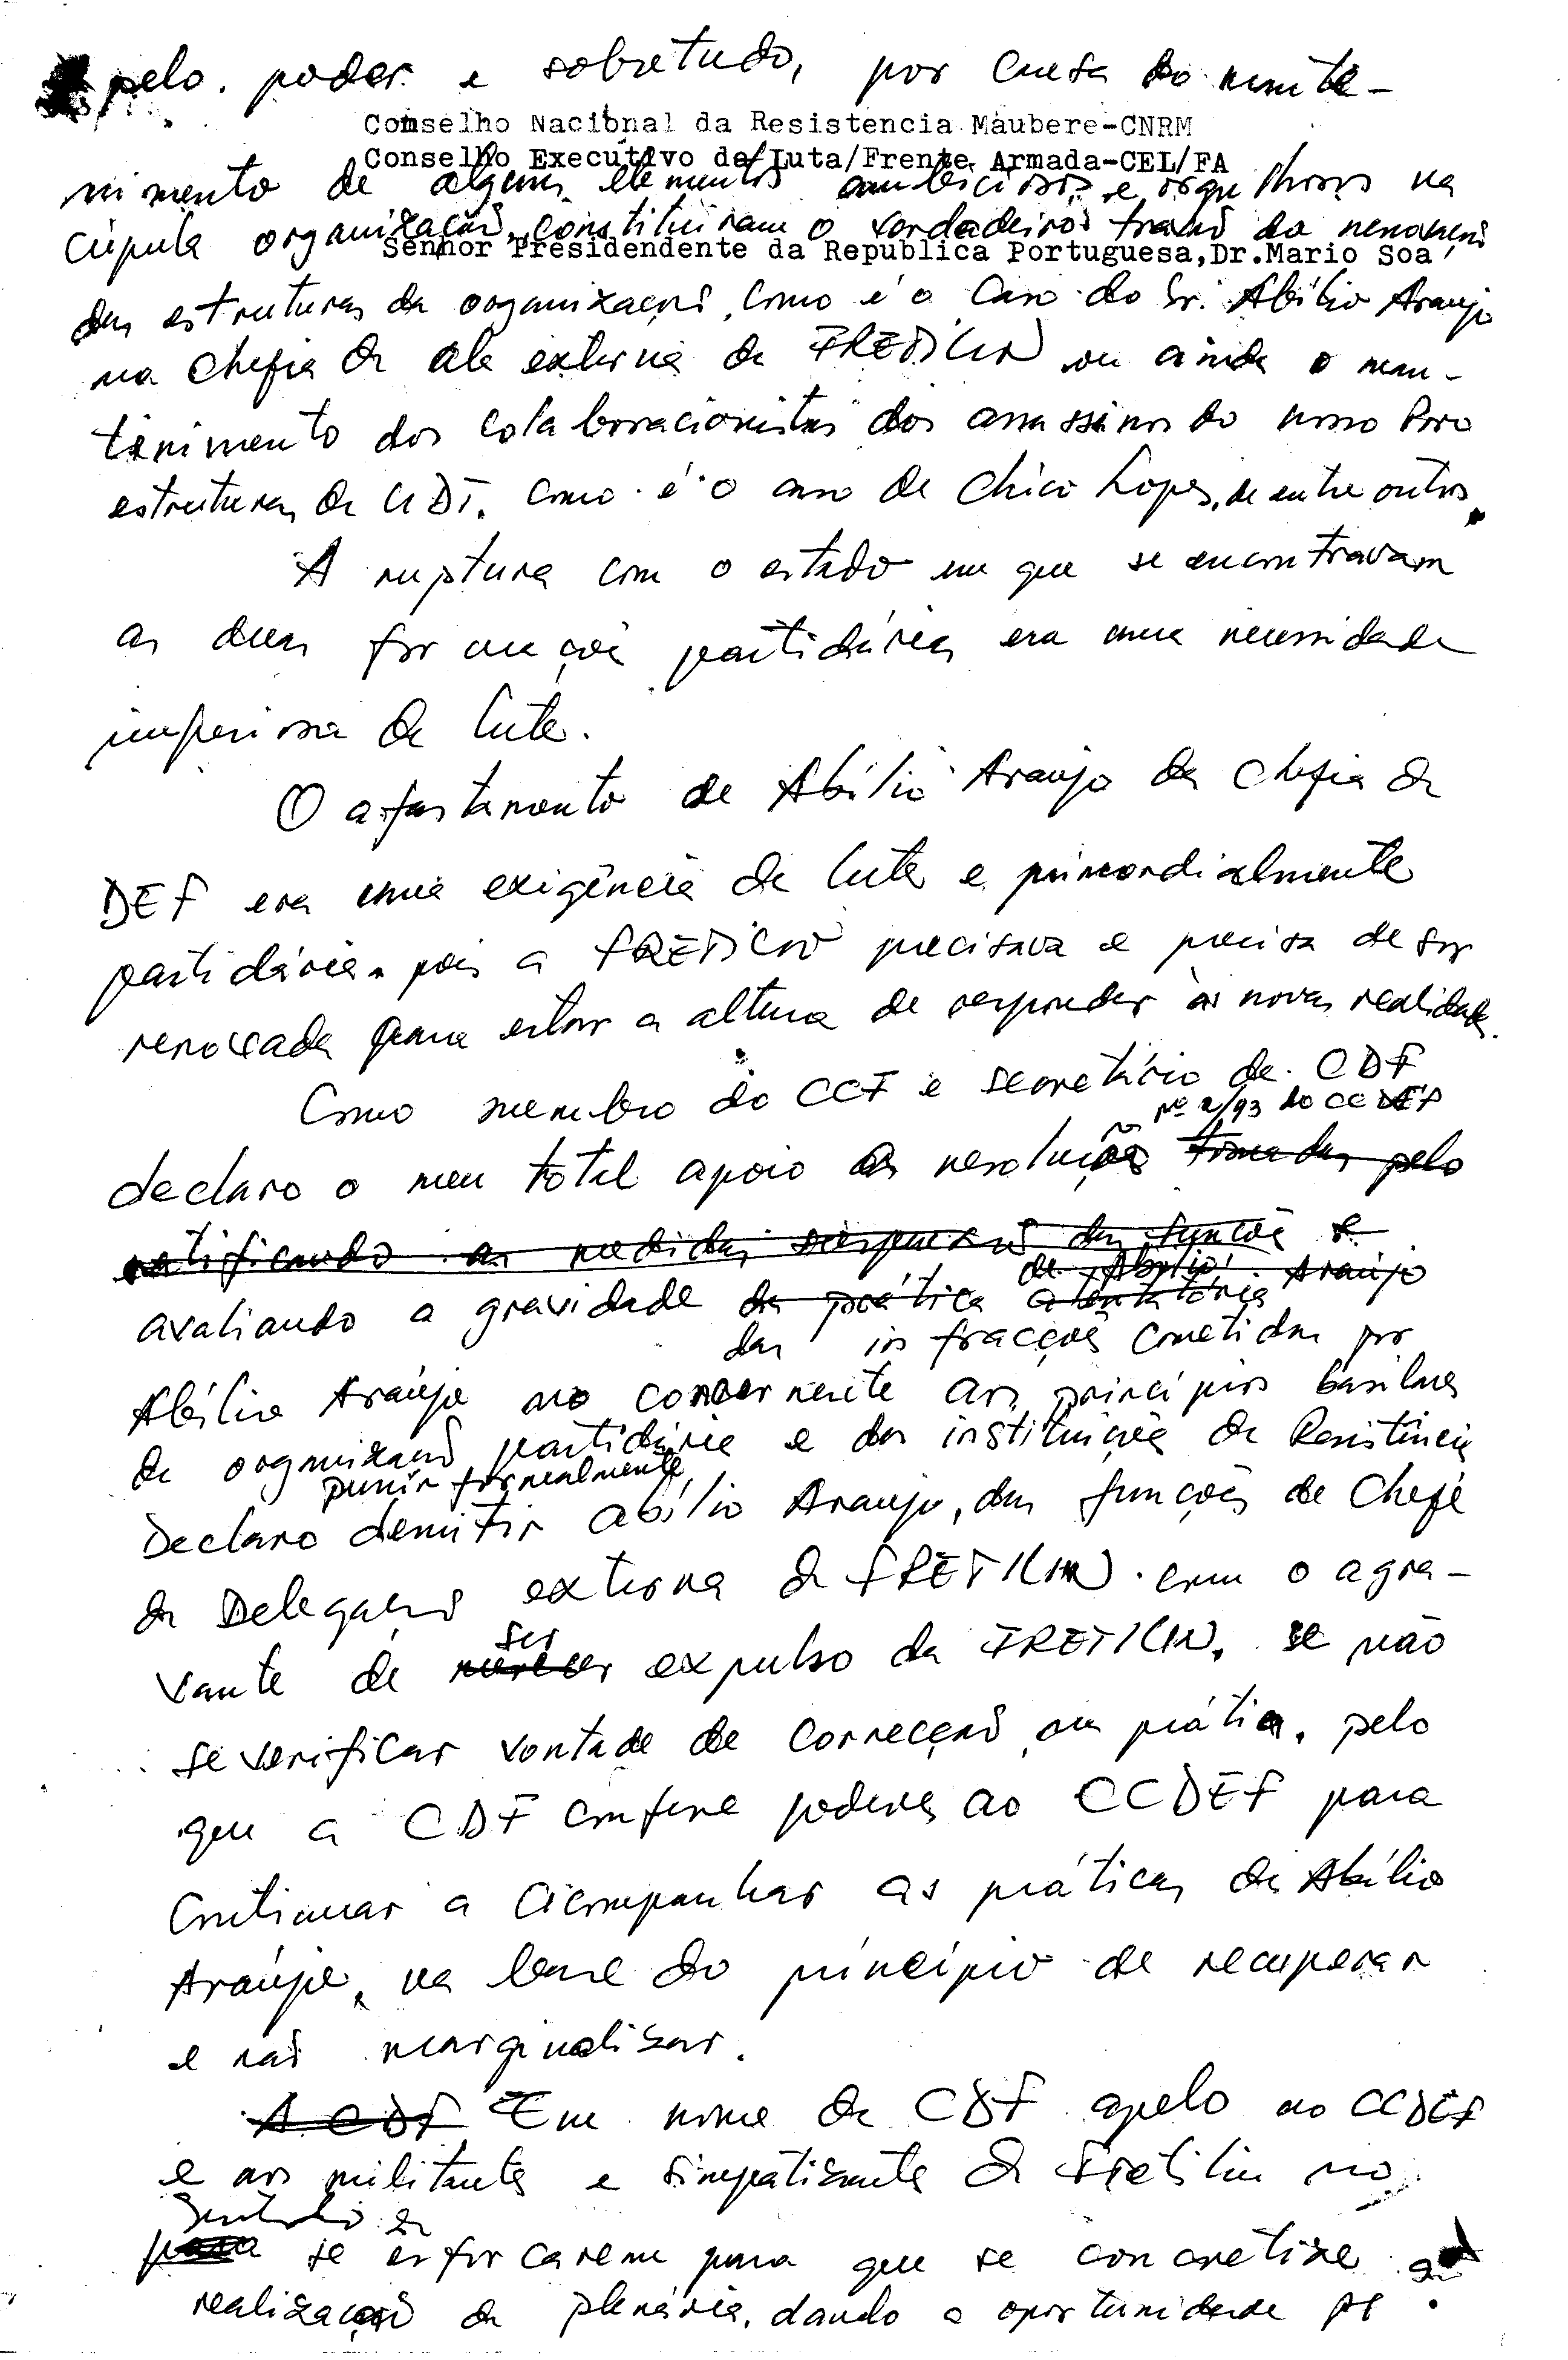 pelo poder e sobretudo, por causa do mante-
Conselho Nacional da Resistencia Maubere-CNRM
Conselho Executivo da Luta/Frente Armada-CEL/FA
nimento de alguns elementos ambiciosos e orgulhosos na
cúpula organização, constituiram o verdadeiros travão da renovação
Senhor Presidendente da Republica Portuguesa,Dr.Mario Soa
das estruturas da organização, como é o caso do Sr. Abílio Araujo
na chefia da ala externa da FRETILIN ou ainda o man-
tenimento dos colaborracionistas dos assassinos do nosso Povo
estruturas da UDT, como é o caso de Chico Lopes, de entre outros.
A ruptura com o estado em que se encontravam
as duas formações partidárias era uma necessidade
imperiosa da luta.
O afastamento de Abílio Araujo da chefia da
DEF era uma exigência da luta e primordialmente
partidária, pois a FRETILIN precisava e precisa de ser
renovada para estar a altura de responder às novas realidades.
Como membro do CCF e secretário da CDF
nº 2/93 do CCDEF
declaro o meu total apoio à resolução tomadas pelo
ratificando as medidas suspensão das funções e
de Abílio Araújo
avaliando a gravidade da prática atentatória
das infracções cometidas por
Abílio Araújo no concernente aos princípios basilares
da organização partidária e das instituições da Resistência
punir formalmente
Declaro demitir Abílio Araujo, das funções de Chefe
da Delegação externa da FRETILIN, com o agra-
ser
vante de merecer expulso da FRETILIN, se não
se verificar vontade de correcção na prática, pelo
que a CDF confere poderes ao CCDEF para
continuar a acompanhar as práticas de Abílio
Araújo, na base do princípio de recuperar
e não marginalizar.
A CDF Em nome da CDF apelo ao CCDEF
e aos militantes e simpatizantes da Fretilin no
sentido de
para se esforcarem para que se concretize a
realização da plenária, dando a oportunidade